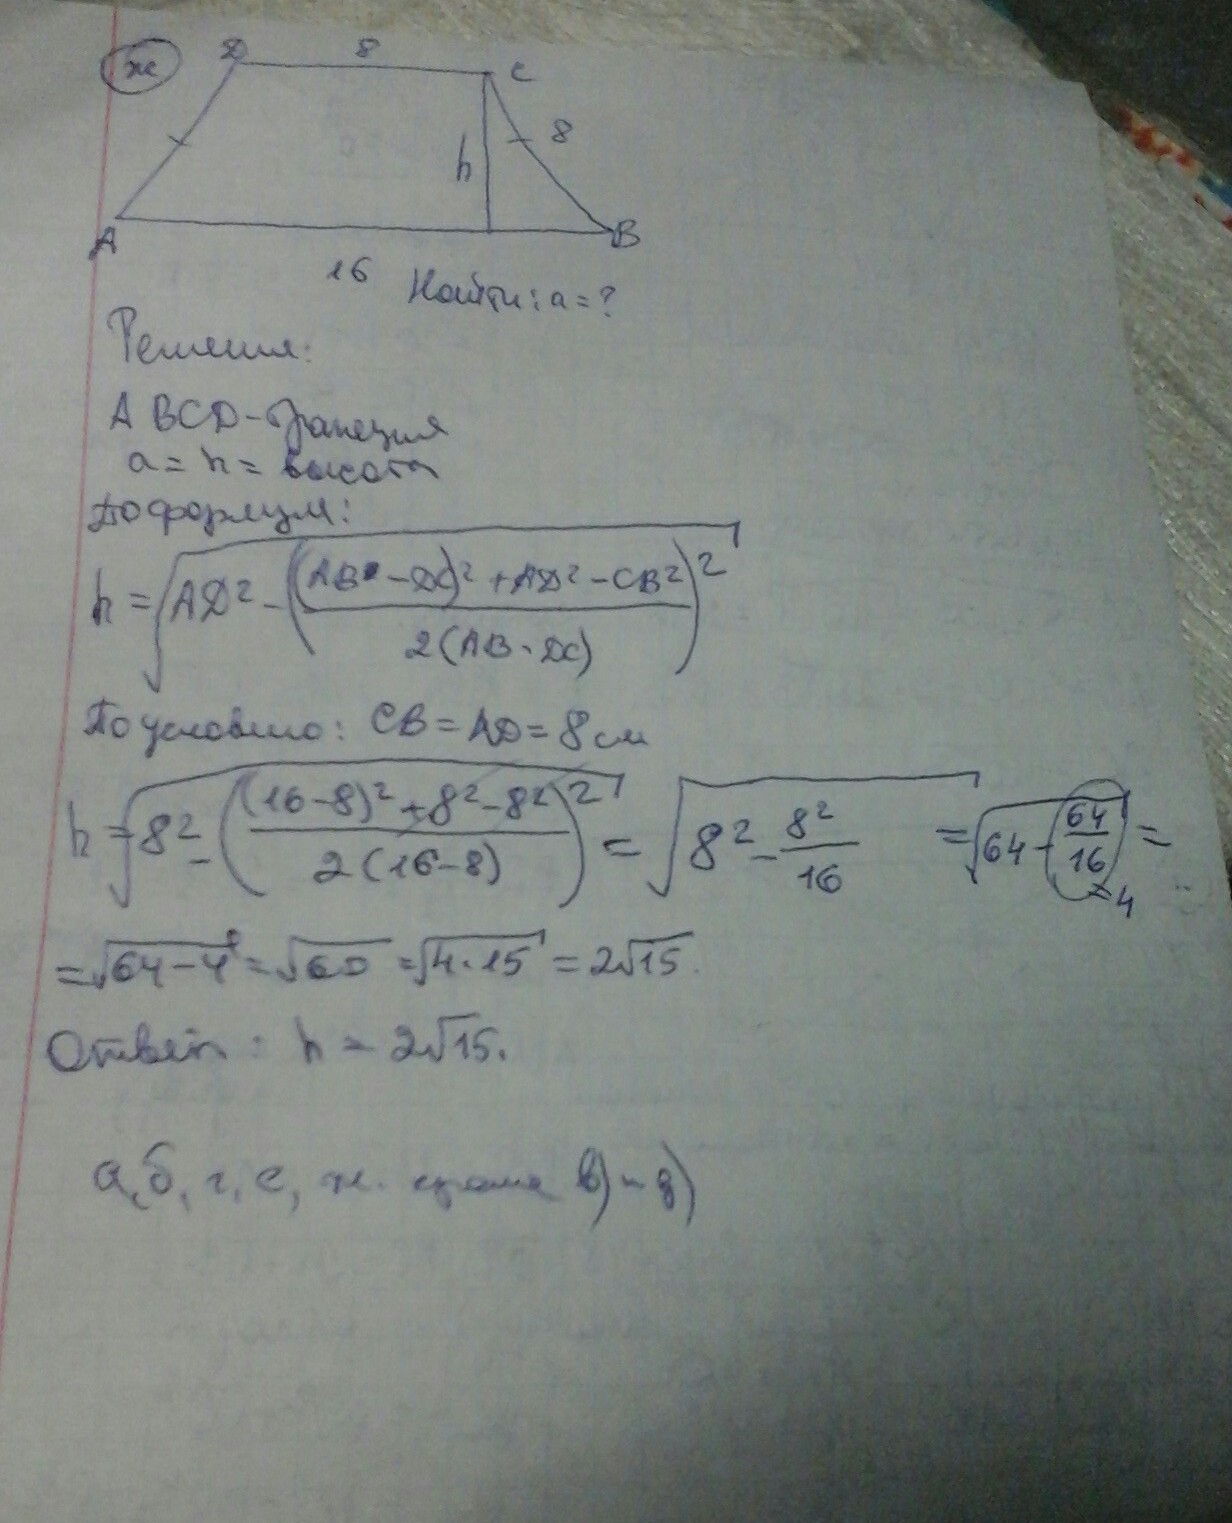 ж
D 8 C
h 8
A B
16 Найти: a = ?
Решения:
ABCD - трапеция
a = h = высота
По формулы:
h = √(AD² - (((AB - DC)² + AD² - CB²) / (2(AB - DC)))²)
По условию: CB = AD = 8 см
h = √(8² - (((16-8)² + 8² - 8²) / (2(16-8)))²) = √(8² - 8²/16) = √(64 - (64/16)) = =4
= √(64-4) = √60 = √(4·15) = 2√15.
Ответ: h = 2√15.
а, б, г, е, ж. в) д)